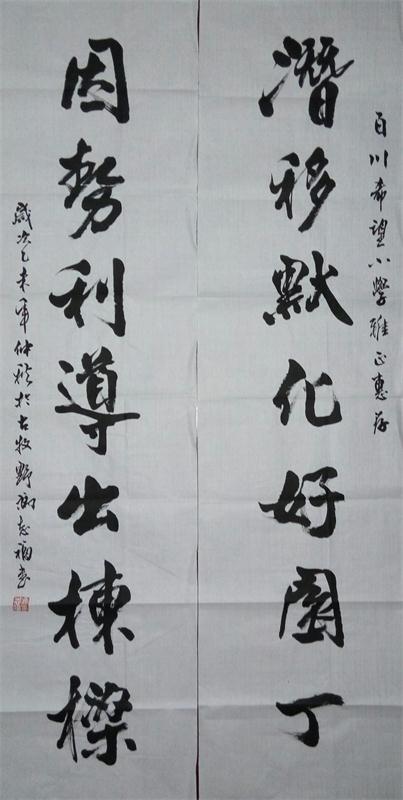 百川希望小學雅正惠存
潛移默化好園丁
因勢利導出棟樑
歲次乙未年仲秋於古牧野
志福書